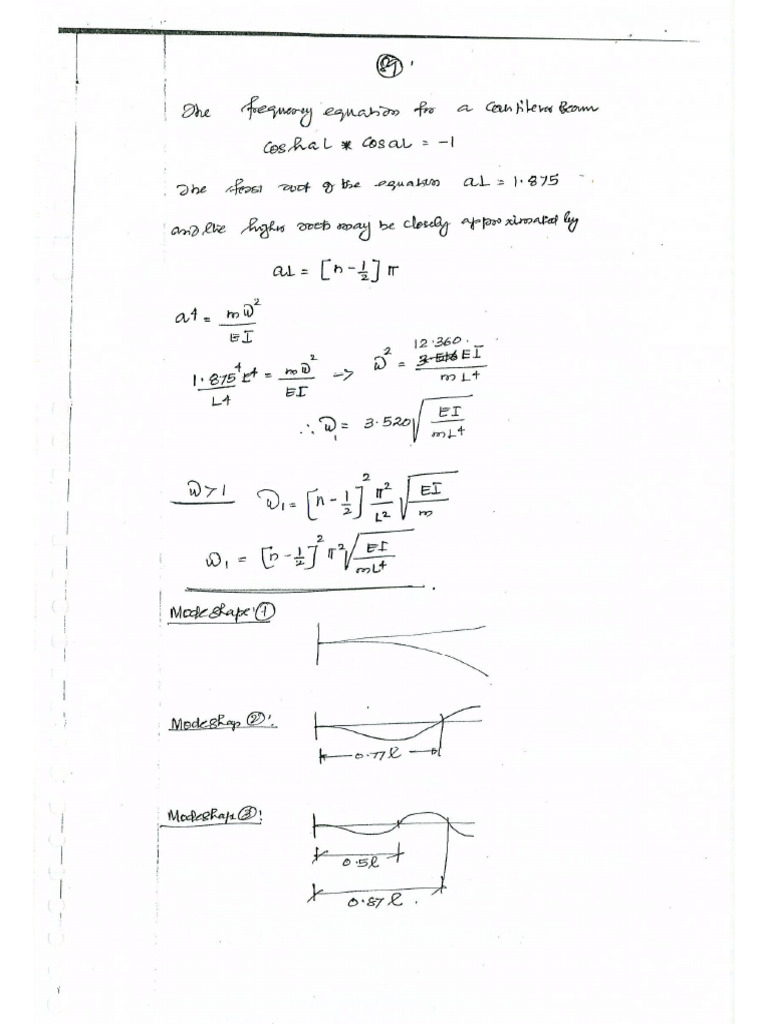 27.
The frequency equation for a Cantilever Beam
coshaL * cosaL = -1
The first root of the equation aL = 1.875
and the higher roots may be closely approximated by
aL = [n - 1/2] π
a4 = mω²/EI
1.875⁴ L⁴/L4 = mω²/EI → ω² = 12.360 EI/mL4
∴ ω₁ = 3.520 √(EI/mL⁴)
ω > 1 ω₁ = [n - 1/2]² π²/L² √(EI/m)
ω₁ = [n - 1/2]² π² √(EI/mL⁴)
Modeshape: ①
Modeshap ②:
0.77l
Modeshap ③:
0.5l
0.87l.